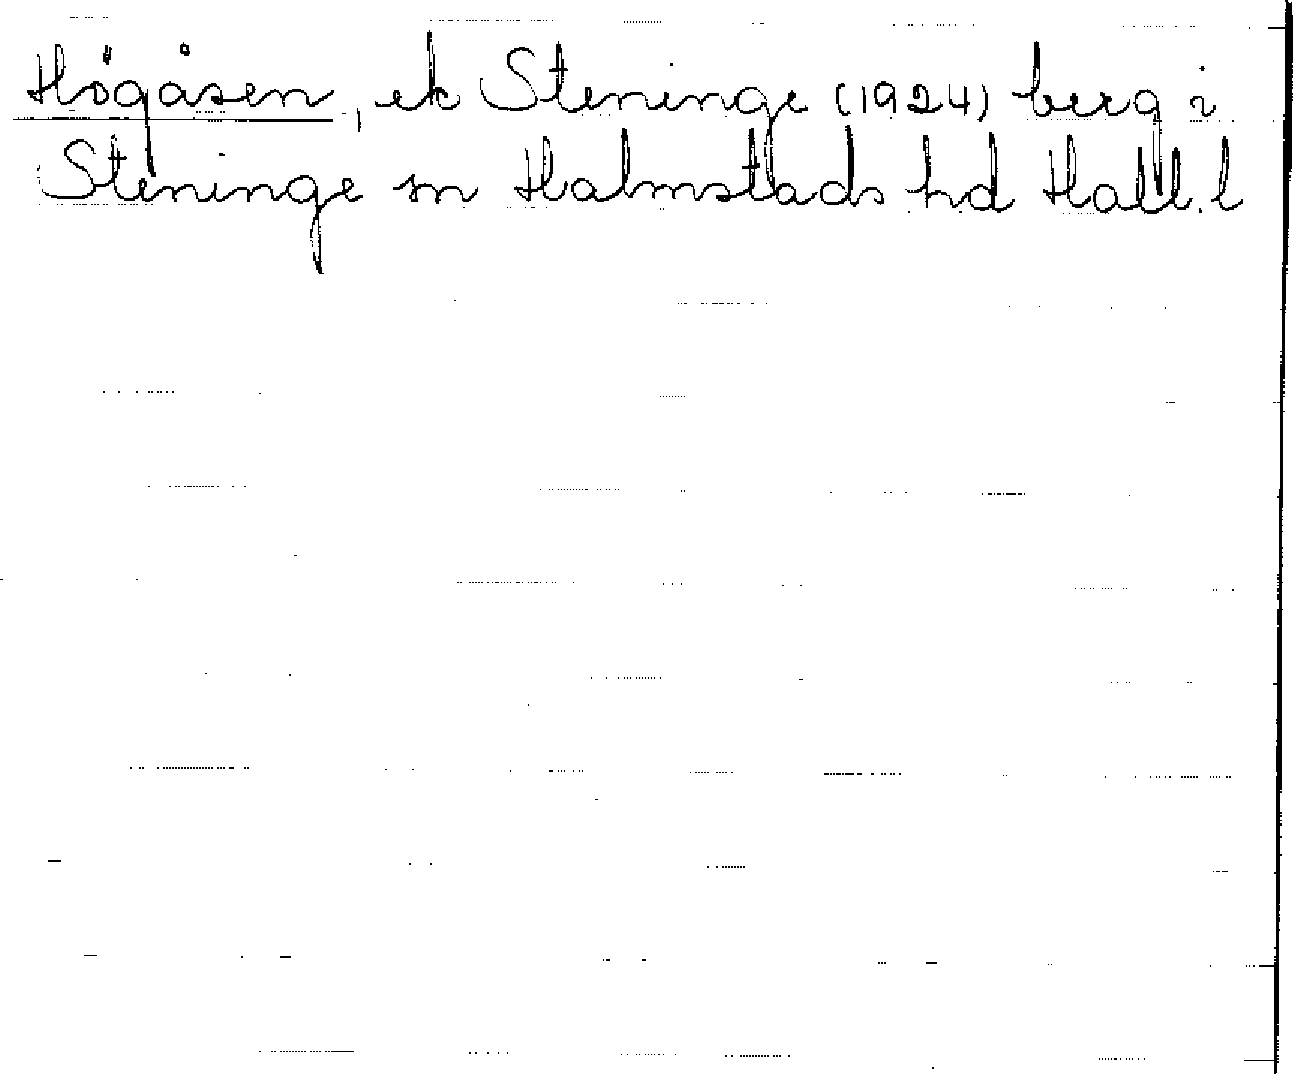 Högåsen, ek Steninge (1924) berg i
Steninge sn Halmstads hd Hall. l